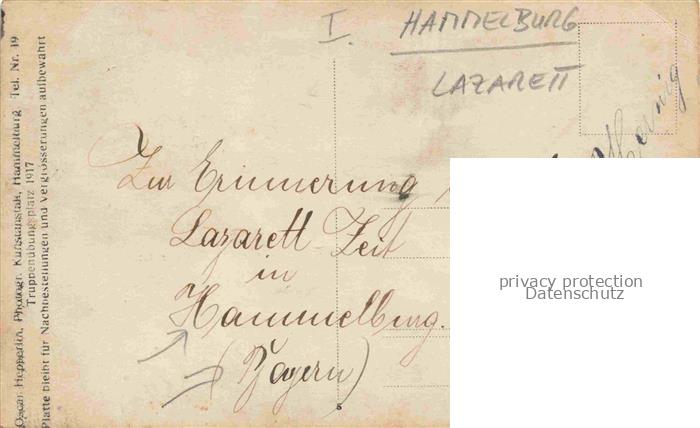 I.
HAMMELBURG
LAZARETT
Zur Erinnerung
Lazarett-Zeit
in
Hammelburg.
(Bayern)
Oscar Hepperlin, Photogr. Kunstanstalt, Hammelburg Tel. Nr. 19
Truppenübungsplatz 1917
Platte bleibt für Nachbestellungen und Vergrösserungen aufbewahrt
privacy protection
Datenschutz